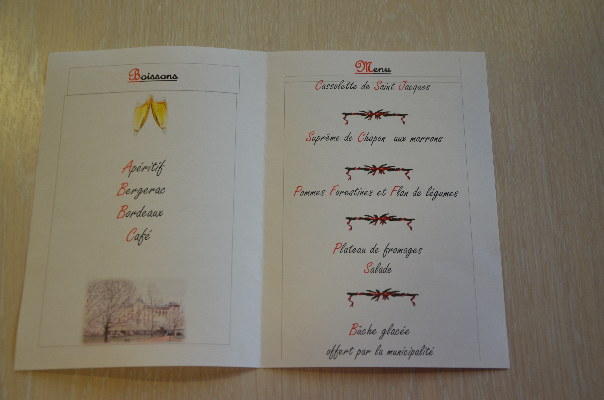 Boissons
Apéritif
Bergerac
Bordeaux
Café
Menu
Cassolette de Saint Jacques
Suprême de Chapon aux marrons
Pommes Forestines et Flan de légumes
Plateau de fromages
Salade
Bûche glacée
offert par la municipalité